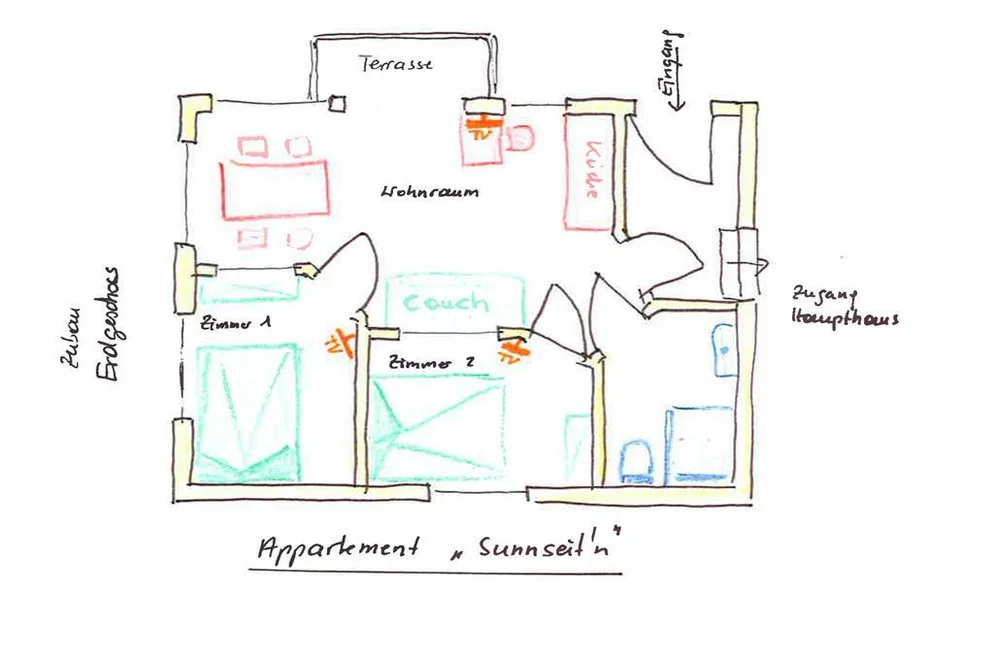 Eingang
Terrasse
Küche
Wohnraum
Zugang
Haupthaus
Couch
Zimmer 1
Zimmer 2
TV
TV
TV
Zubau
Erdgeschoss
Appartement „Sunnseit'n"